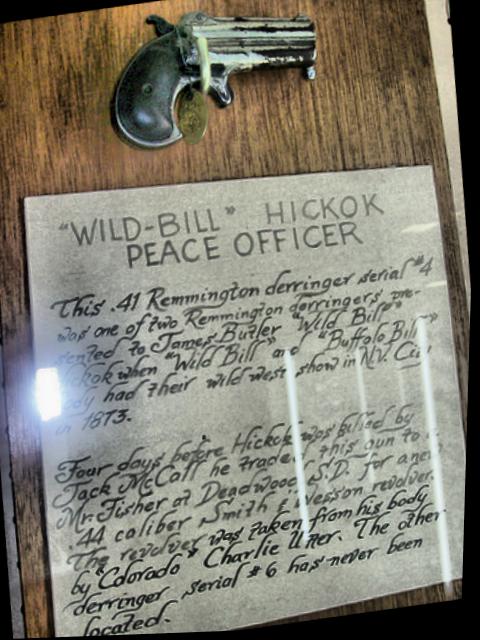 "WILD-BILL" HICKOK
PEACE OFFICER
This .41 Remmington derringer serial #4
was one of two Remmington derringers pre-
sented to James Butler "Wild Bill"
Hickok when "Wild Bill" and "Buffalo Bill"
Cody had their wild west show in N.Y. City
in 1873.
Four days before Hickok was killed by
Jack McCall he traded this gun to a
Mr. Fisher at Deadwood S.D. for a new
.44 caliber Smith & Wesson revolver.
The revolver was taken from his body
by "Colorado" Charlie Utter. The other
derringer, serial #6 has never been
located.